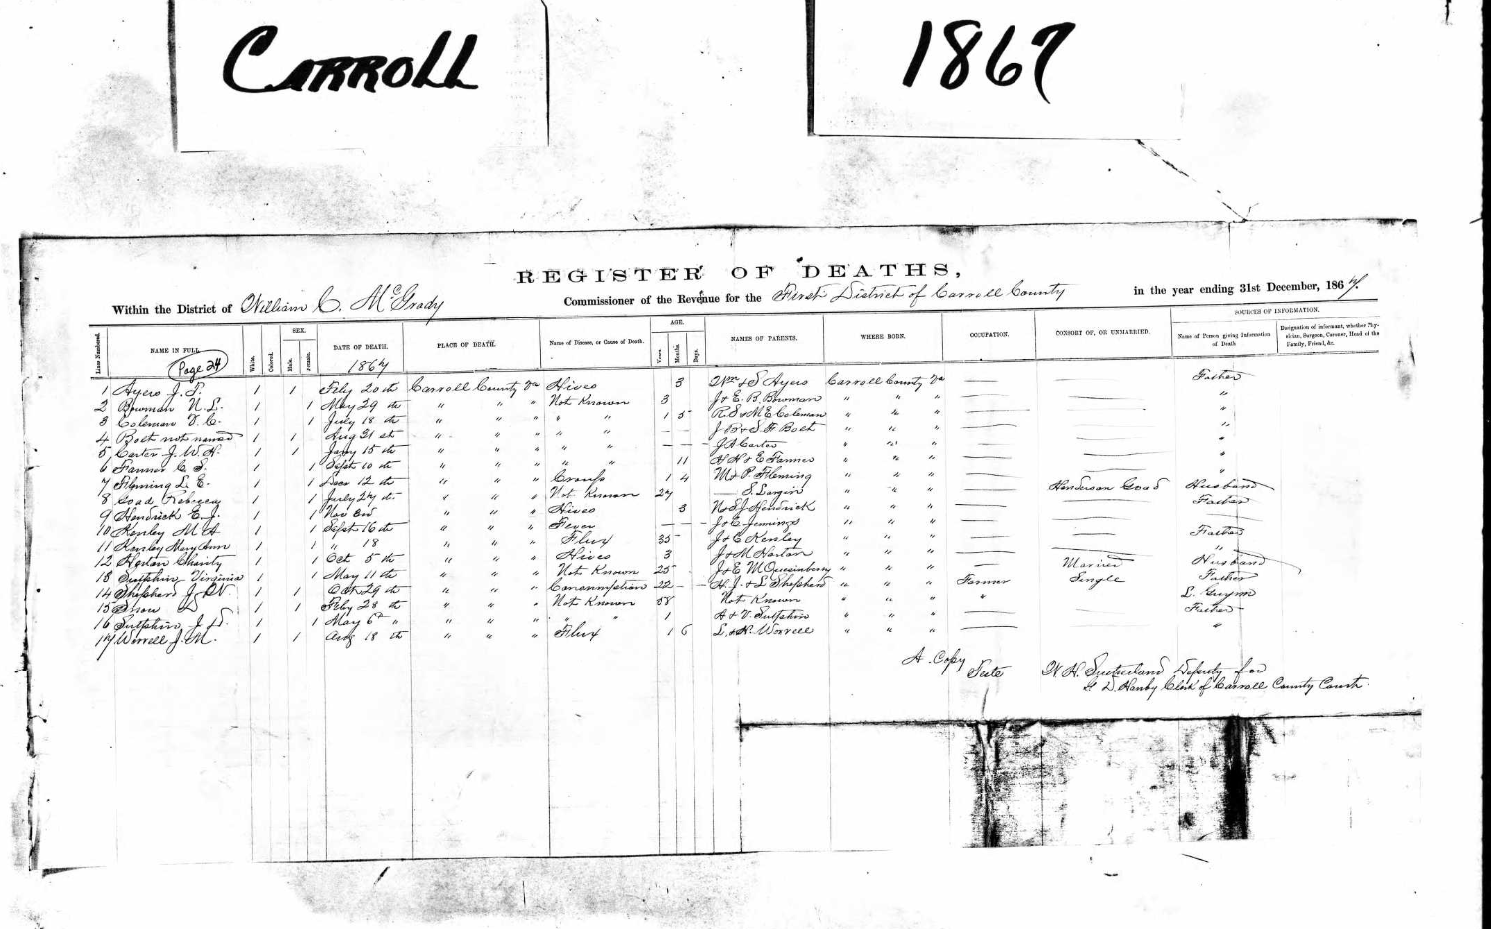 CARROLL
1867
REGISTER OF DEATHS,
Within the District of William C. McGrady Commissioner of the Revenue for the First District of Carroll County in the year ending 31st December, 1867.
Line Numbered. NAME IN FULL. White. Colored. SEX. Male. Female. DATE OF DEATH. PLACE OF DEATH. Name of Disease, or Cause of Death. AGE. Years. Months. Days. NAMES OF PARENTS. WHERE BORN. OCCUPATION. CONSORT OF, OR UNMARRIED. SOURCES OF INFORMATION. Name of Person giving Information of Death Designation of informant, whether Physician, Surgeon, Coroner, Head of the Family, Friend, &c.
Page 24 1867
1 Ayers J. T. 1 1 Feby 20th Carroll County Va Hives 3 Wm & S Ayers Carroll County Va Father
2 Bowman N. L. 1 1 May 29 th " " " Not Known 3 J & E. B. Bowman " " " "
3 Coleman V. C. 1 1 July 18 th " " " " " 1 5 R. S & M E Coleman " " " "
4 Bolt not named 1 1 Aug 31 st " " " " " J B & S. F Bolt " " " "
5 Carter J. W. H. 1 1 Jany 15 th " " " " " J A Carter " " " "
6 Farmer C S. 1 1 Sept 10 th " " " " " 11 H H & E Farmer " " " "
7 Fleming L. E. 1 1 Dec 12 th " " " Croup 1 4 M & P. Fleming " " " "
8 Goad Rebecca 1 1 July 27 th " " " Not Known 27 S. Largin " " " Henderson Goad Husband
9 Hendrick E. J. 1 1 Nov 3rd " " " Hives 3 N & S J Hendrick " " " Father
10 Kenley M A 1 1 Sept 16 th " " " Fever J & C Jennings " " "
11 Kenley Mary Ann 1 1 " 18 " " " Flux 35 J & C Kenley " " " Father
12 Horton Charity 1 1 Oct 5 th " " " Hives 3 J & M Horton " " " "
13 Sutphin Virginia 1 1 May 11 th " " " Not Known 25 J & E M Quesinberry " " " Married Husband
14 Shepherd J W 1 1 Oct 29 th " " " Consumption 22 H. J. & L Shepherd " " " Farmer Single Father
15 Snow D 1 1 Feby 28 th " " " Not Known 58 Not Known " " " " L. Guynn
16 Sutphin J D. 1 1 May 6th " " " " " " 1 A & V. Sutphin " " " Father
17 Worrell J. M. 1 1 Aug 18 th " " " Flux 1 6 L. & N. Worrell " " " "
A Copy
Teste W H. Sutherland Deputy for
D. Hanby Clerk of Carroll County Court